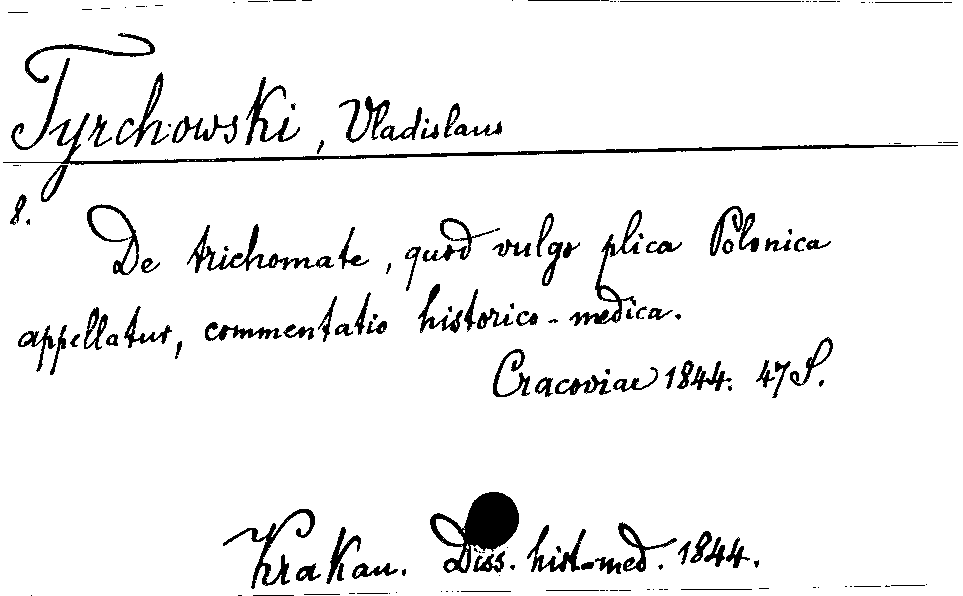 Tyrchowski, Vladislaus
8.
De trichomate, quod vulgo plica Polonica
appellatur, commentatio historico-medica.
Cracoviae 1844. 47 S.
Krakau. Diss. hist-med. 1844.